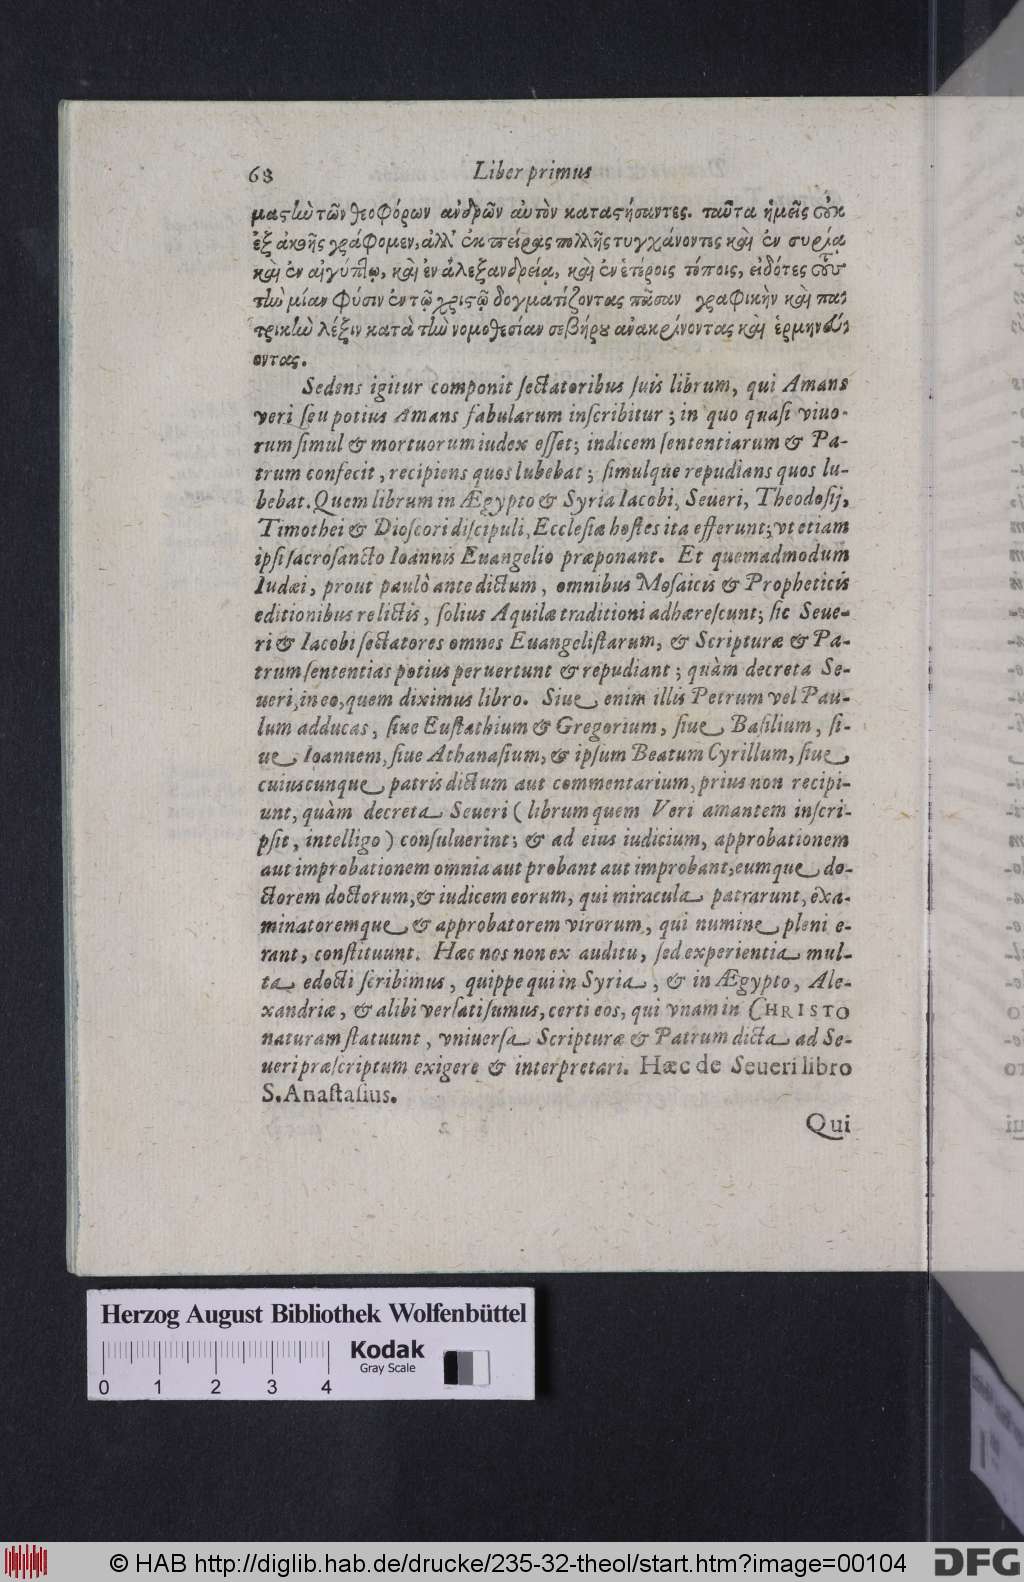 68 Liber primus
μαστὴν τῶν θεοφόρων ἀνδρῶν αὐτὸν καταστήσαντες. ταῦτα ἡμεῖς οὐκ
ἐξ ἀκοῆς γράφομεν, ἀλλ' ἐκ πείρας πολλῆς τυγχάνοντες καὶ ἐν συρίᾳ
καὶ ἐν αἰγύπτῳ, καὶ ἐν ἀλεξανδρείᾳ, καὶ ἐν ἑτέροις τόποις, εἰδότες τοὺς
τὴν μίαν φύσιν ἐν τῷ χριστῷ δογματίζοντας πᾶσαν γραφικὴν καὶ πα-
τρικὴν λέξιν κατὰ τὴν νομοθεσίαν σεβήρου ἀνακρίνοντας καὶ ἑρμηνεύ-
οντας.
Sedens igitur componit ſectatoribus ſuis librum, qui Amans
veri ſeu potius Amans fabularum inſcribitur; in quo quaſi viuo-
rum ſimul & mortuorum iudex eſſet; indicem ſententiarum & Pa-
trum confecit, recipiens quos lubebat; ſimulque repudians quos lu-
bebat. Quem librum in Ægypto & Syria Iacobi, Seueri, Theodoſij,
Timothei & Dioſcori diſcipuli, Eccleſiæ hoſtes ita efferunt; vt etiam
ipſi ſacroſancto Ioannis Euangelio præponant. Et quemadmodum
Iudæi, prout paulò ante dictum, omnibus Moſaicis & Propheticis
editionibus relictis, ſolius Aquilæ traditioni adhæreſcunt; ſic Seue-
ri & Iacobi ſectatores omnes Euangeliſtarum, & Scripturæ & Pa-
trum ſententias potius peruertunt & repudiant; quàm decreta Se-
ueri, in eo, quem diximus libro. Siue enim illis Petrum vel Pau-
lum adducas, ſiue Euſtathium & Gregorium, ſiue Baſilium, ſi-
ue Ioannem, ſiue Athanaſium, & ipſum Beatum Cyrillum, ſiue
cuiuscunque patris dictum aut commentarium, prius non recipi-
unt, quàm decreta Seueri (librum quem Veri amantem inſcri-
pſit, intelligo) conſuluerint; & ad eius iudicium, approbationem
aut improbationem omnia aut probant aut improbant, eumque do-
ctorem doctorum, & iudicem eorum, qui miracula patrarunt, exa-
minatoremque & approbatorem virorum, qui numine pleni e-
rant, conſtituunt. Hæc nos non ex auditu, ſed experientia mul-
ta edocti ſcribimus, quippe qui in Syria, & in Ægypto, Ale-
xandriæ, & alibi verſati ſumus, certi eos, qui vnam in CHRISTO
naturam ſtatuunt, vniuerſa Scripturæ & Patrum dicta ad Se-
ueri præſcriptum exigere & interpretari. Hæc de Seueri libro
S. Anaſtaſius.
Qui
Herzog August Bibliothek Wolfenbüttel
Kodak
Gray Scale
0 1 2 3 4
© HAB http://diglib.hab.de/drucke/235-32-theol/start.htm?image=00104
DFG